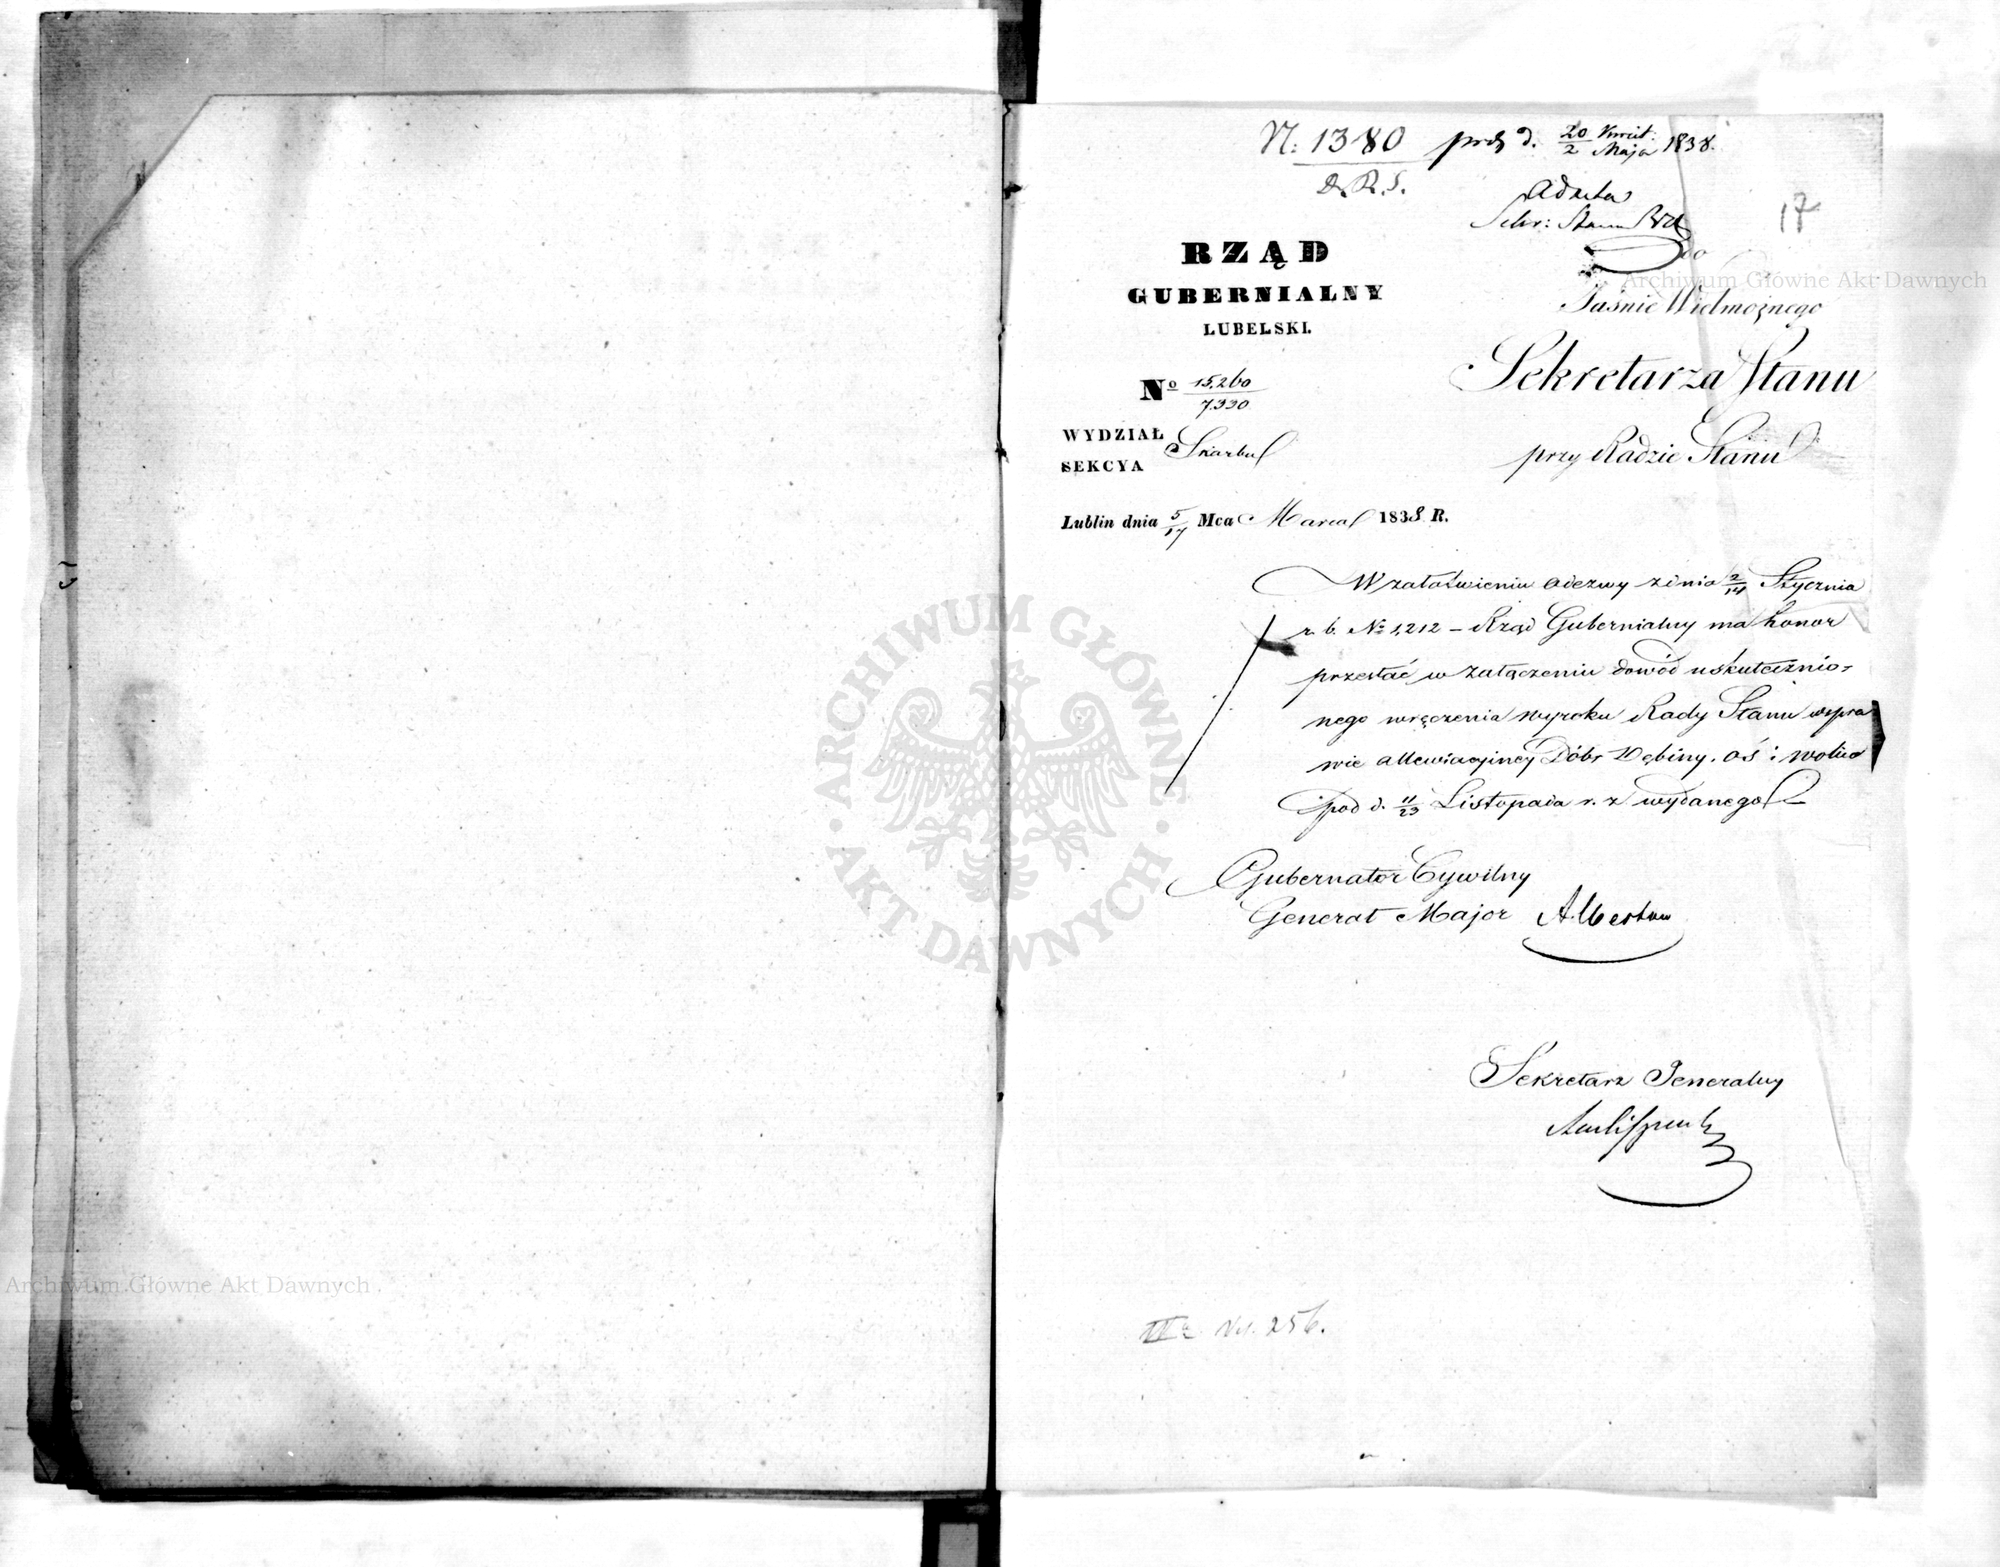 N: 1380 prds d. 20/2 Kwiet: Maja 1838.
D. R. S.
Ad acta
Sekr: Stanu
17
RZĄD
GUBERNIALNY
LUBELSKI.
do
Jaśnie Wielmożnego
Sekretarza Stanu
przy Radzie Stanu
No 15,260/7,330
WYDZIAŁ Skarbu
SEKCYA
Lublin dnia 5/17 Mca Marca 1838 R.
W załatwieniu odezwy z dnia 2/14 Stycznia
r. b. No 1,212 – Rząd Gubernialny ma honor
przesłać w załączeniu dowód uskutecznio-
nego wręczenia wyroku Rady Stanu w spra
wie allewiacyjnej Dóbr Dębiny, oś: wolica
pod d. 11/23 Listopada r. z wydanego
Gubernator Cywilny
Generał Major Albertow
Sekretarz Generalny
Vol. 256.
Archiwum Główne Akt Dawnych
Archiwum Główne Akt Dawnych
ARCHIWUM GŁÓWNE
· AKT DAWNYCH ·